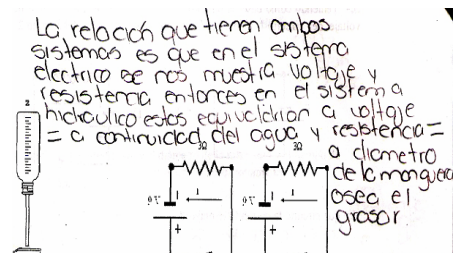 La relación que tienen ambos
sistemas es que en el sistema
electrico se nos muestra voltaje y
resistencia entonces en el sistema
hidraulico estos equivaldrian a voltaje
= a continuidad del agua y resistencia =
a diametro
de la manguera
osea el
grosor
2
3Ω
3Ω
9V
I
9V
I
+
+